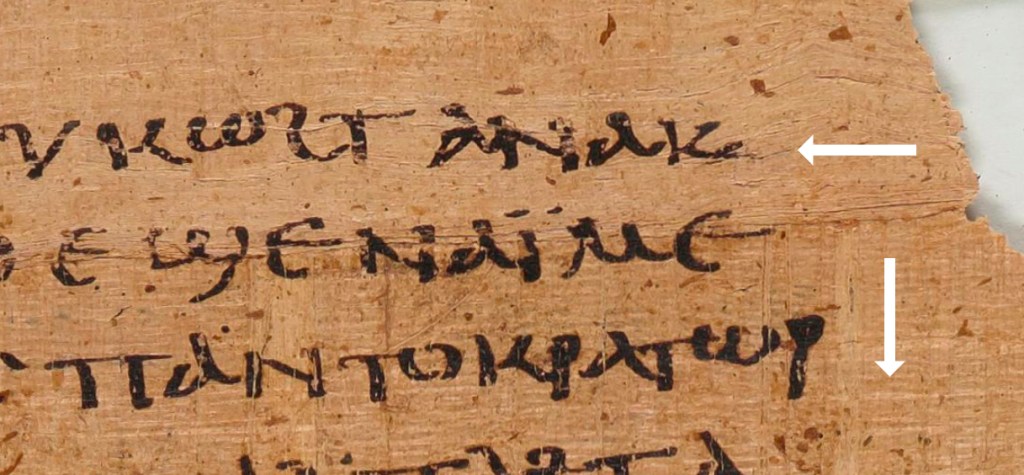 ⲩⲕⲱϩⲧ ⲁⲛⲁⲕ
ⲉϣⲉⲛⲁⲓ̈ⲙⲉ
ⲡⲁⲛⲧⲟⲕⲣⲁⲧⲱⲣ